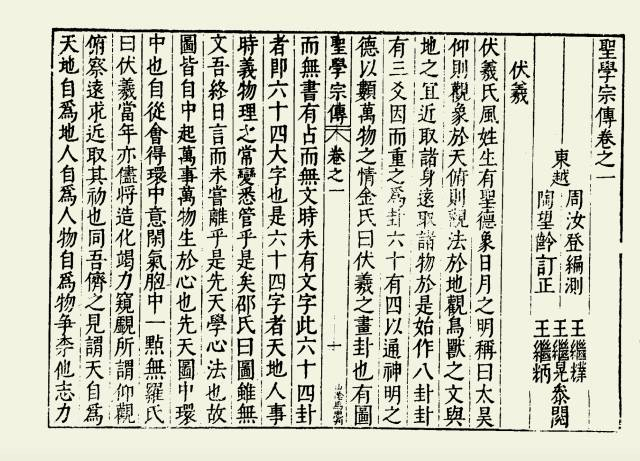 聖學宗傳卷之一
東越
周汝登編測
陶望齡訂正
王繼𤍠
王繼晃參閱
王繼炳
伏羲
伏羲氏風姓生有聖德象日月之明稱曰太昊
仰則觀象於天俯則觀法於地觀鳥獸之文與
地之宜近取諸身遠取諸物於是始作八卦卦
有三爻因而重之爲卦六十有四以通神明之
德以類萬物之情金氏曰伏羲之畫卦也有圖
聖學宗傳 卷之一 十
而無書有占而無文時未有文字此六十四卦
者即六十四大字也是六十四字者天地人事
時義物理之常變悉管乎是矣邵氏曰圖雖無
文吾終日言而未嘗離乎是先天學心法也故
圖皆自中起萬事萬物生於心也先天圖中環
中也自從會得環中意閑氣胞中一點無羅氏
曰伏羲當年亦儘將造化竭力窺覰所謂仰觀
俯察遠求近取其初也同吾儕之見謂天自爲
天地自爲地人自爲人物自爲物爭李他志力